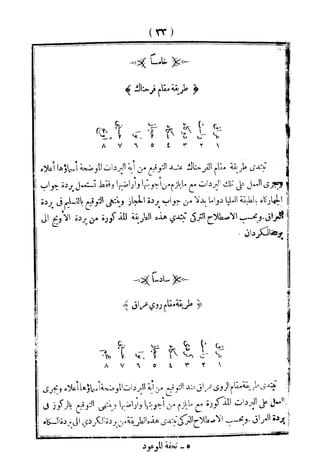 ( ٣٣ )
خامساً
﴿ طريقة مقام فرحناك ﴾
١ ٢ ٣ ٤ ٥ ٦ ٧ ٨
تبتدى طريقة مقام الفرحناك عند التوقيع من أية البردات الموضحة أسماؤها أعلاه
ويجرى العمل على تلك البردات مع مايلزم من أجوبتها وأراضيها وفقط تستعمل بردة جواب
الجهاركاه بالطبقة العليا دواما بدلا من جواب بردة الحجاز وينتهى التوقيع بالتسليم فى بردة
العراق. وبحسب الاصطلاح التركى تبتدي هذه الطريقة المذكورة من بردة الأويج الى
بردة الكردان
سادساً
﴿ طريقة مقام روي عراق ﴾
١ ٢ ٣ ٤ ٥ ٦ ٧ ٨
تبتدى طريقة مقام الروى عراق عند التوقيع من أية البردات الموضحة أسماؤها أعلاه ويجرى
العمل على البردات المذكورة مع مايلزم من أجوبتها وأراضيها وينتهى التوقيع بالركوز فى
بردة العراق. وبحسب الاصطلاح التركى تبتدى هذه الطريقة من بردة الكردي الى بردة السكاه
٥ — تحفة الموعود